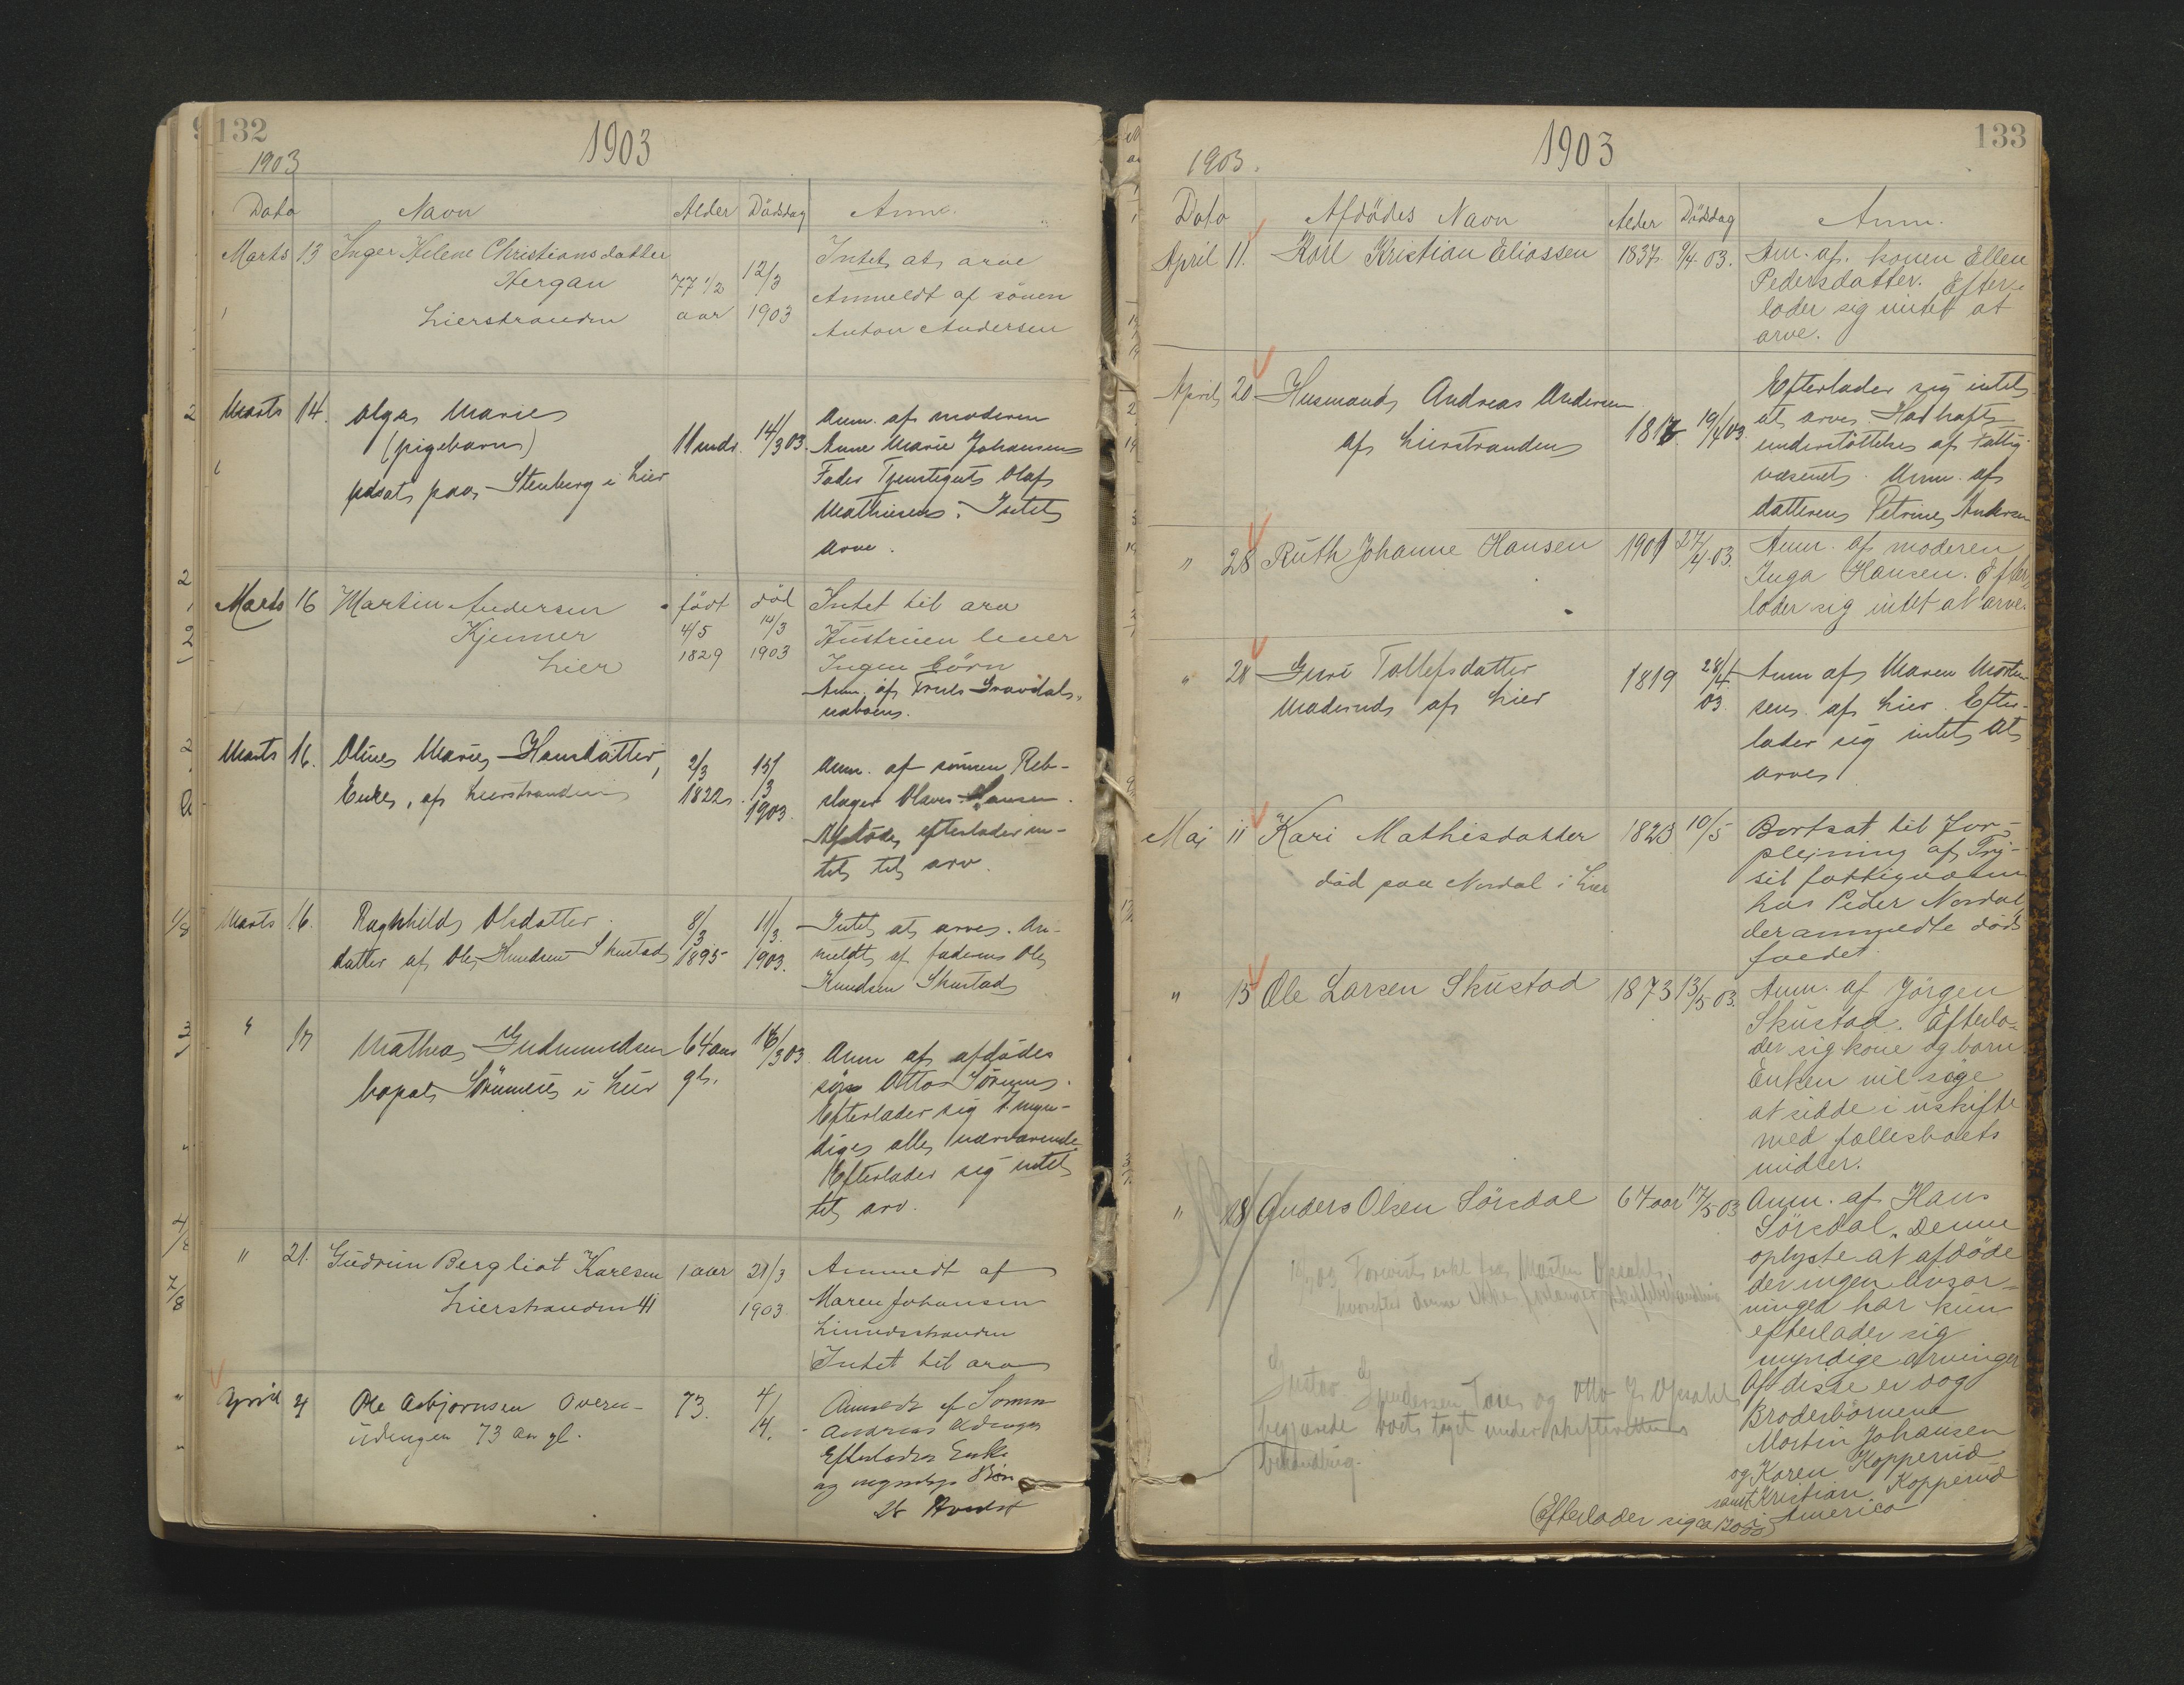 132
1903
1903
Dato Navn Alder Dödsdag Anm.
Marts 13 Inger Helene Christiansdatter
Hergan
Lierstranden
77 1/2
aar
12/3
1903
Intet at arve
Anmeldt af sönen
Anton Andersen
Marts 14. Olga Marie
(pigebarn)
udsat paa Stenberg i Lier
11 mdr. 14/3 03.
Anm. af moderen
Anne Marie Johansen
Fader Tjenstegut Olaf
Mathiesen. Intet
arve.
Marts 16 Martin Andersen
Kjenner
Lier
födt
4/5
1829
död
14/3
1903
Intet til arv
Hustruen lever
Ingen börn
Anm. af Truls Gravdal,
naboen.
Marts 16. Oline Marie Hansdatter,
Enke, af Lierstranden
2/3
1822
15/
/3
1903.
Anm. af sönnen Reb-
slager Olaves Hansen.
Afdöde efterlader in-
tet til arv.
Marts 16. Ragnhild Olsdatter.
datter af Ole Knudsen Skustad
8/3
1895
11/3.
1903.
Intet at arve. An-
meldt af faderen Ole
Knudsen Skustad
" 17 Mathea Gudmundsen
bopat i Lier
64 aar
gl.
16/3 03.
Anm af afdödes
sön Otto
Efterlader sig 7 myn-
dige alle nærværende
Efterlader sig intet
til arv.
" 21. Gudrun Bergliot Karlsen
Lierstranden
1 aar 21/3
1903
Anmeldt af
Maren Johansen
Linnesstranden
Intet til arv
April 4 Ole Asbjørnsen Overn-
73 Aar gl.
73. 4/
/4.
Anmeldt af Sönnen
Andreas
Efterlader Enke
og myndige Börn
133
1903
1903.
Dato Afdödes Navn Alder Dödsdag Anm.
April 11. Karl Kristian Eliassen 1837. 9/4 03.
Anm. af. konen Ellen
Pedersdatter. Efter-
lader sig intet at
arve.
April 20 Husmand Andreas Andersen
af Lierstranden
1817. 19/4 03.
Efterlader sig intet
at arve. Har haft
understöttelse af Fattig
væsenet. Anm. af
datteren Petrine Andersen
" 28 Ruth Johanne Hansen 1901 27/4 03.
Anm. af moderen
Inga Hansen. Efter
lader sig intet at arve.
" 28 Guri Tollefsdatter
af Lier
1819 28/4
03.
Anm af Maren Morten
sen af Lier. Efter-
lader sig intet at
arve
Maj 11 Kari Mathisdatter
död paa Nordal i Lier
1823 10/5
Bortsat til For-
plejning af Try-
sil fattigvæsen
hos Peder Nordal
der anmeldte döds
faldet
" 15 Ole Larsen Skustad 1873 13/5 03.
Anm. af Jörgen
Skustad. Efterla-
der sig kone og barn
Enken vil søge
at sidde i uskifte
med fællesboets
midler.
" 18 Anders Olsen Sörsdal 67 aar 17/5 03
Anm. af Hans
Sörsdal. Denne
oplyste at afdöde
der ingen livsar-
vinger har kun
efterlader sig
myndige arvinger
Af disse er dog
Broderbörnene
Martin Johansen
og Karen Kopperud
samt Kristian Kopperud
i America
(Efterlader sig
Morten Opsahl,
hvorefter denne ikke forlanger skiftebehandling
Gustav Gundersen og Otto Opsahl
begjærede boet taget under skifterettens
behandling.